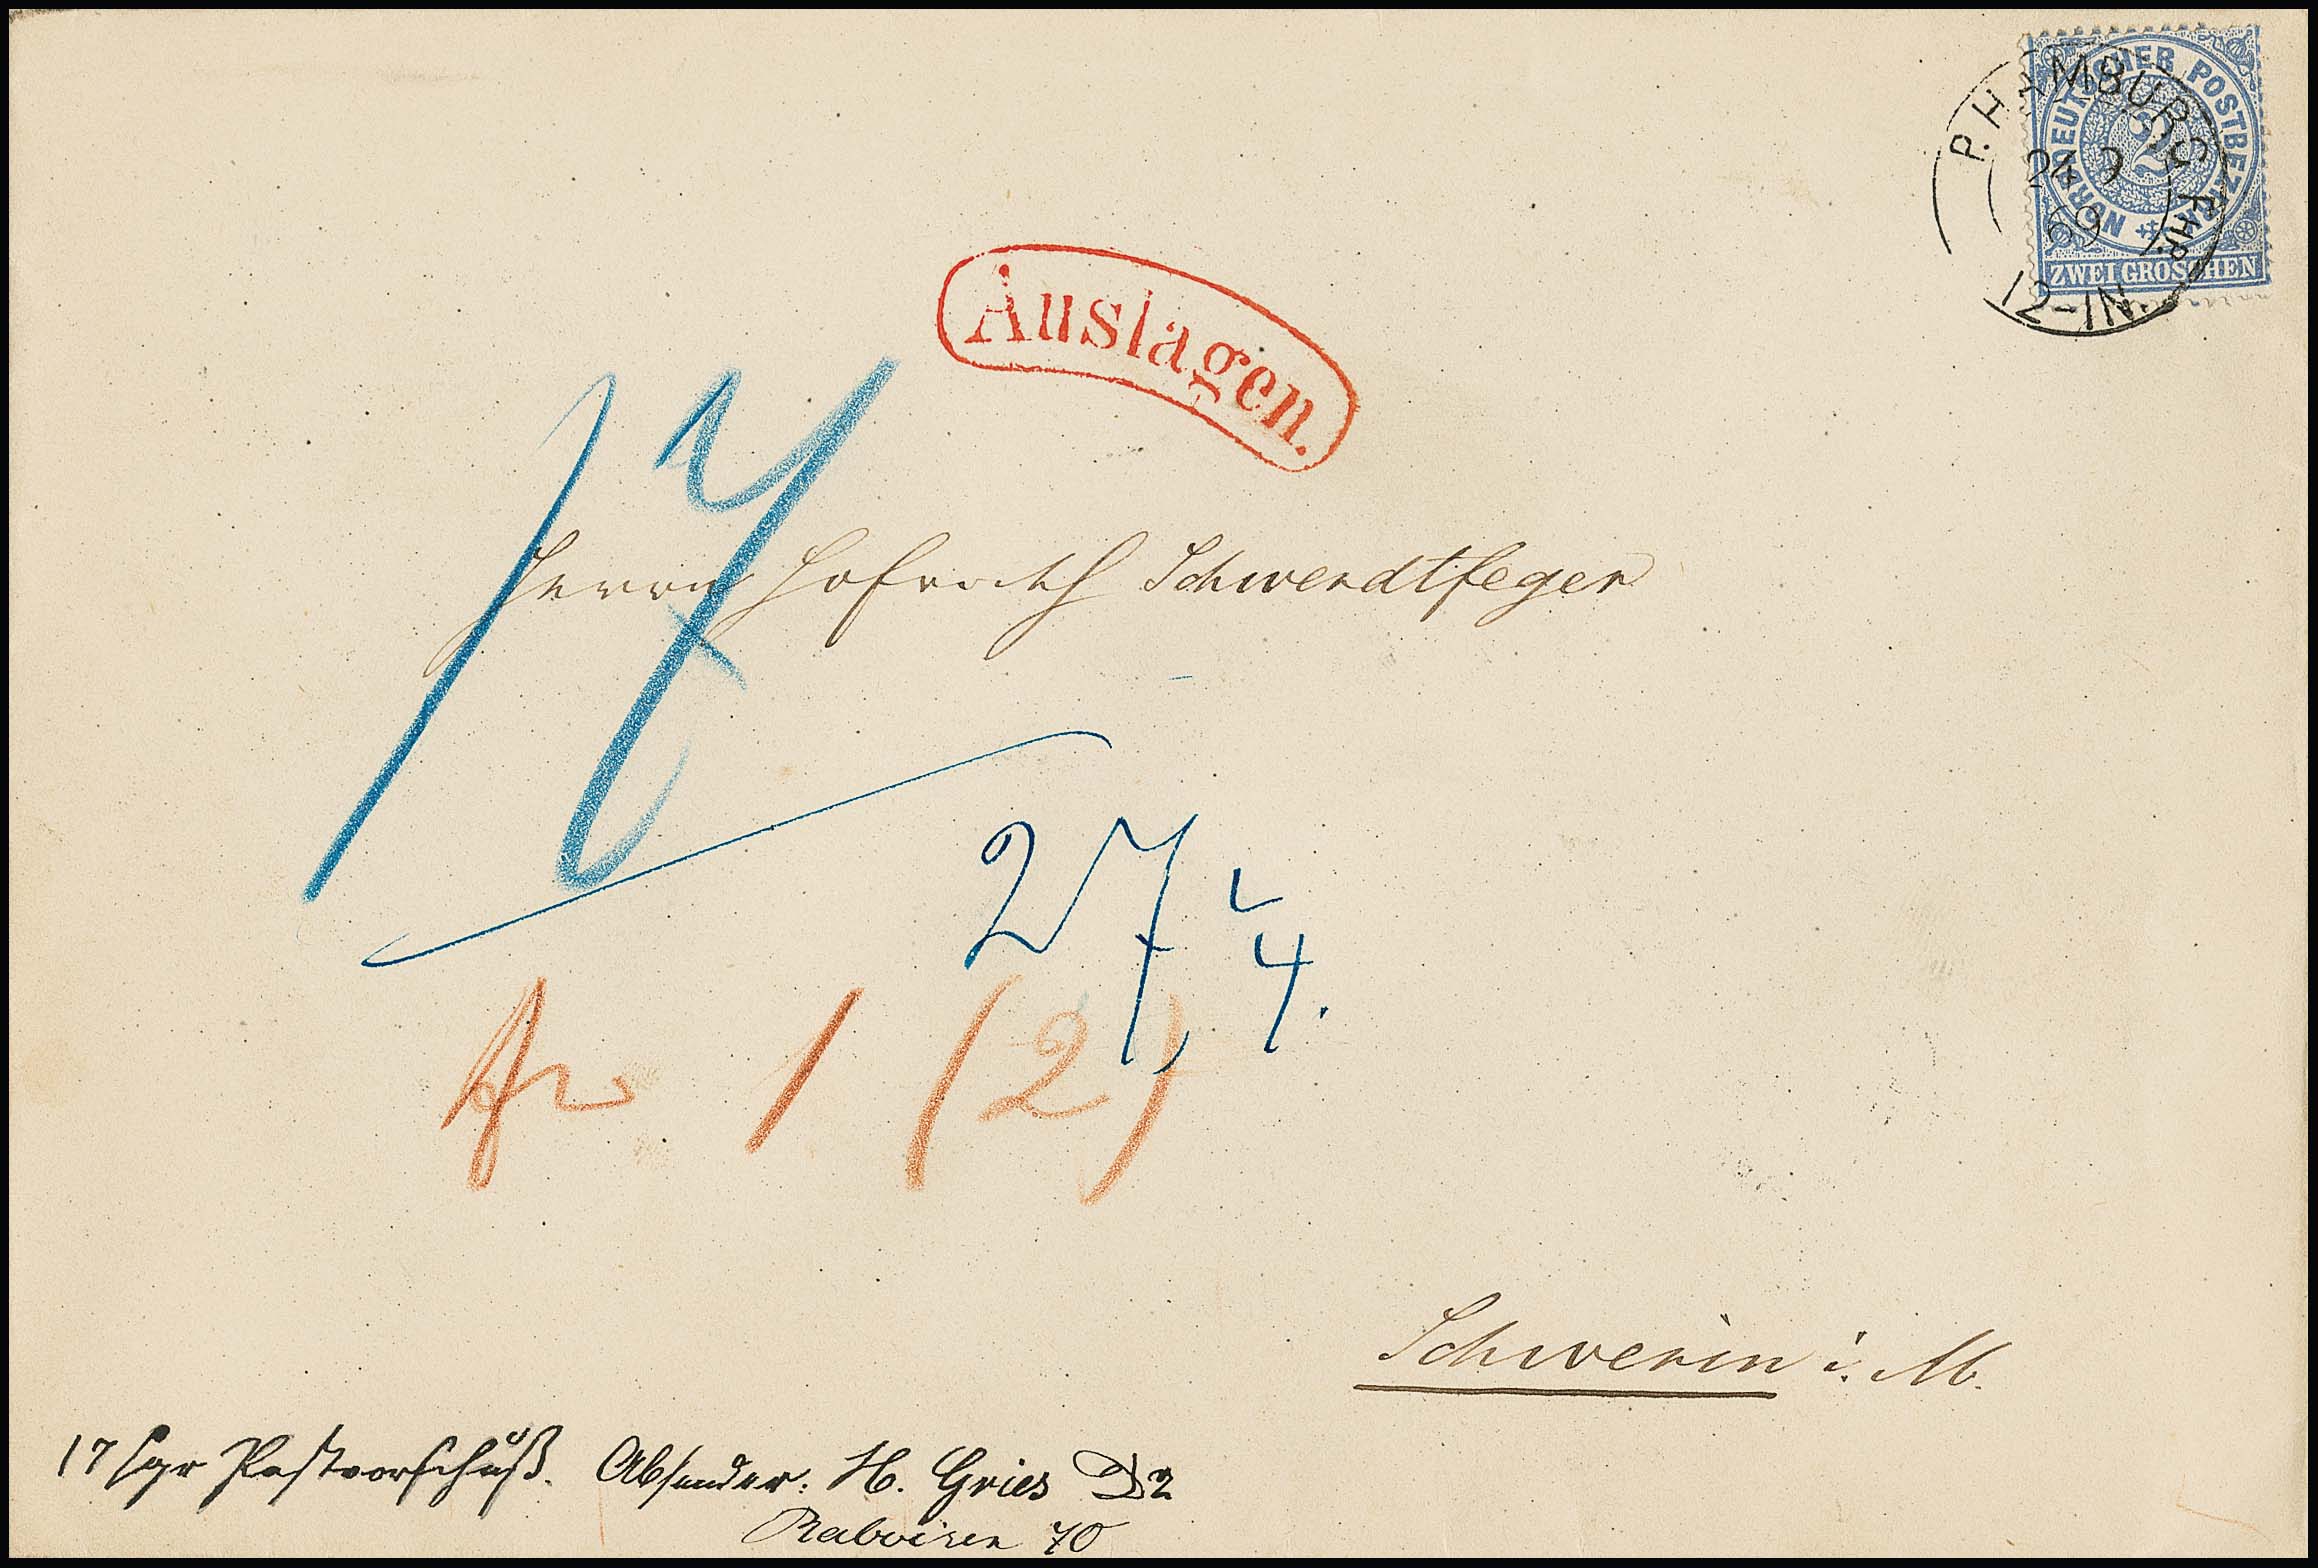 NORDDEUTSCHER POSTBEZIRK
2
ZWEI GROSCHEN
P. HAMBURG.
24 9
69
12-1N.
Auslagen.
17
Herrn Hofrath Schwerdtfeger
27,
4.
fr 1 (2)
Schwerin i. M.
17 sgr Postvorschuß. Absender: H. Gries Dr
Raboisen 70